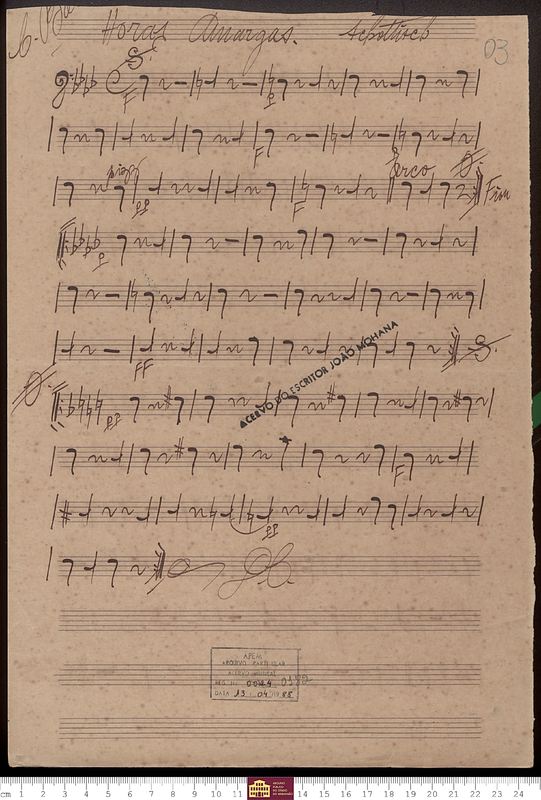 C-Bxo Horas Amargas. Schottisch
03
S.
F
P
F
pizz
PP
F
Arco
Fim
P
FF
S.
ACERVO DO ESCRITOR JOÃO MOHANA
PP
F
PP
D.C.
APEM
ARQUIVO PARTICULAR
ACERVO MUSICAL
REG. Nº 0024 0172
DATA 13 / 04 / 1988
cm 1 2 3 4 5 6 7 8 9 10 11 14 15 16 17 18 19 20 21 22 23 24